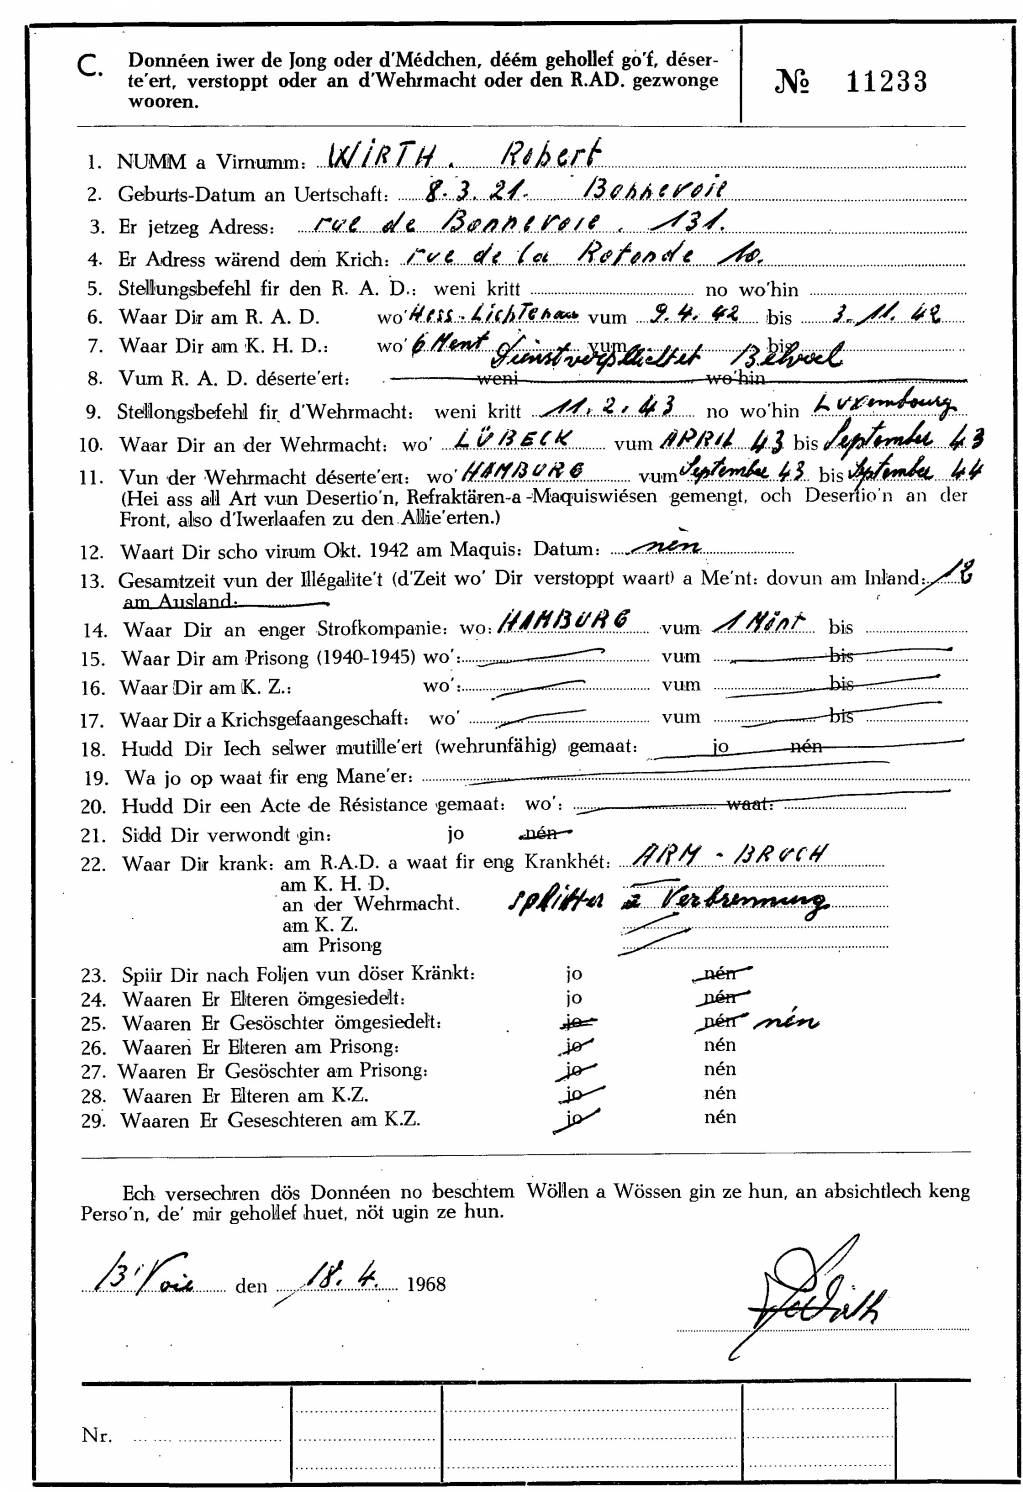 C. Donnéen iwer de Jong oder d'Médchen, déém gehollef go'f, déser-
te'ert, verstoppt oder an d'Wehrmacht oder den R.AD. gezwonge
wooren.
№ 11233
1. NUMM a Virnumm: WIRTH. Robert
2. Geburts-Datum an Uertschaft: 8.3.21. Bonnevoie
3. Er jetzeg Adress: rue de Bonnevoie. 131.
4. Er Adress wärend dem Krich: rue de la Rotonde 10.
5. Stellungsbefehl fir den R. A. D.: weni kritt no wo'hin
6. Waar Dir am R. A. D. wo' Hess-Lichtenau vum 9.4.42 bis 3.11.42
7. Waar Dir am K. H. D.: wo' 6 Ment Dienstverpflichtet vum bis
8. Vum R. A. D. déserte'ert: weni wo'hin
9. Stellongsbefehl fir d'Wehrmacht: weni kritt 11.2.43 no wo'hin Luxembourg
10. Waar Dir an der Wehrmacht: wo' LÜBECK vum APRIL 43 bis September 43
11. Vun der Wehrmacht déserte'ert: wo' HAMBURG vum September 43 bis September 44
(Hei ass all Art vun Desertio'n, Refraktären-a-Maquiswiésen gemengt, och Desertio'n an der
Front, also d'Iwerlaafen zu den Allie'erten.)
12. Waart Dir scho virum Okt. 1942 am Maquis: Datum: nèn
13. Gesamtzeit vun der Illégalite't (d'Zeit wo' Dir verstoppt waart) a Me'nt: dovun am Inland: 12
am Ausland:
14. Waar Dir an enger Strofkompanie: wo: HAMBURG vum 1 Mónt bis
15. Waar Dir am Prisong (1940-1945) wo': vum bis
16. Waar Dir am K. Z.: wo': vum bis
17. Waar Dir a Krichsgefaangeschaft: wo' vum bis
18. Hudd Dir Iech selwer mutille'ert (wehrunfähig) gemaat: jo nén
19. Wa jo op waat fir eng Mane'er:
20. Hudd Dir een Acte de Résistance gemaat: wo': waat:
21. Sidd Dir verwondt gin: jo nén
22. Waar Dir krank: am R.A.D. a waat fir eng Krankhét: ARM-BRUCH
am K. H. D.
an der Wehrmacht. splitter a Verbrennung
am K. Z.
am Prisong
23. Spiir Dir nach Foljen vun döser Kränkt: jo nén
24. Waaren Er Elteren ömgesiedelt: jo nén
25. Waaren Er Gesöschter ömgesiedelt: jo nén nén
26. Waaren Er Elteren am Prisong: jo nén
27. Waaren Er Gesöschter am Prisong: jo nén
28. Waaren Er Elteren am K.Z. jo nén
29. Waaren Er Geseschteren am K.Z. jo nén
Ech versechren dös Donnéen no beschtem Wöllen a Wössen gin ze hun, an absichtlech keng
Perso'n, de' mir gehollef huet, nöt ugin ze hun.
B'Voie den 18.4. 1968
Wirth
Nr.